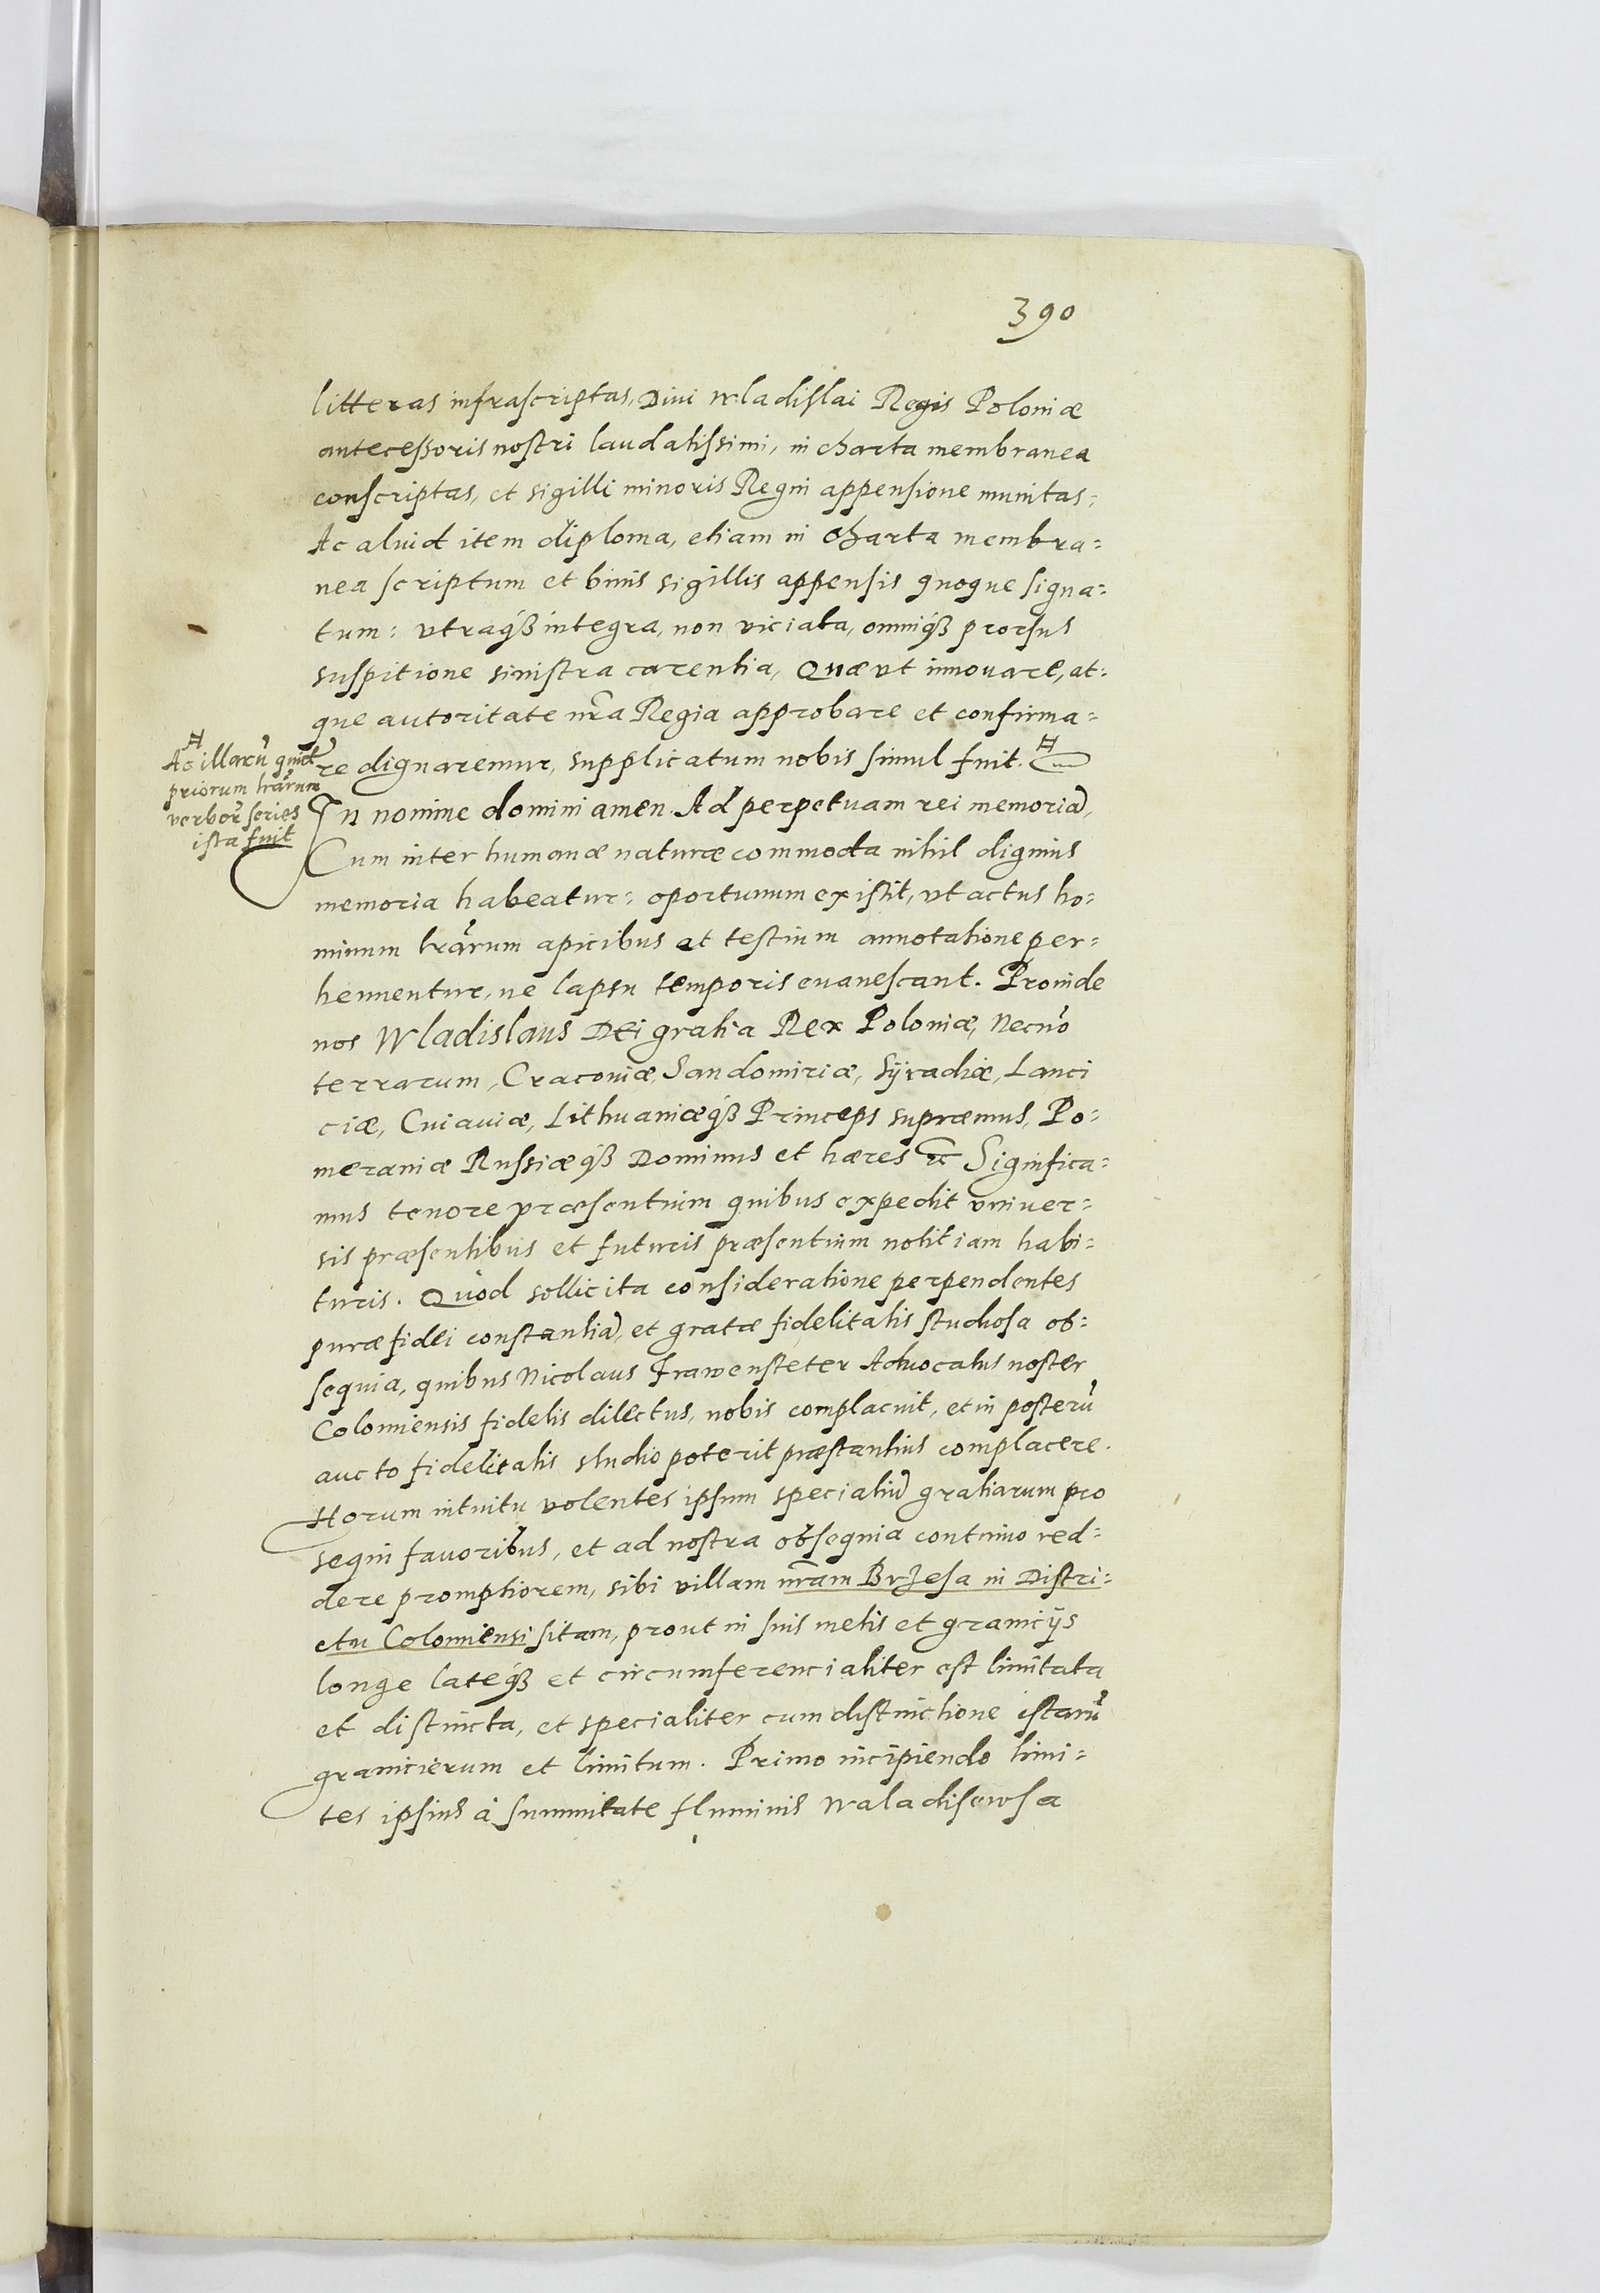 390
litteras infrascriptas, Diui Wladislai Regis Poloniæ
antecessoris nostri laudatissimi, in charta membranea
conscriptas, et sigilli minoris Regni appensione munitas:
Ac aliud item diploma, etiam in charta membra=
nea scriptum et binis sigillis appensis quoque signa=
tum: vtraq́ꝫ integra, non viciata, omniq́ꝫ prorsus
suspitione sinistra carentia, Quæ vt innouare, at=
que autoritate nr̃a Regia approbare et confirma=
re dignaremur, supplicatum nobis simul fuit. #
# Ac illarũ quid̃
priorum lrãrum
verborũ series
ista fuit
In nomine domini amen. Ad perpetuam rei memoriã,
Cum inter humanæ naturæ commoda nihil dignius
memoria habeatur: oportunum existit, vt actus ho=
minum lrãrum apicibus et testium annotatione per=
hennentur, ne lapsu temporis euanescant. Proinde
nos Wladislaus Dei gratia Rex Poloniæ, Necnõ
terrarum, Cracouiæ, Sandomiriæ, Syradiæ, Lanci
ciæ, Cuiauiæ, Lithuaniæq́ꝫ Princeps supræmus, Po=
meraniæ Russiæq́ꝫ Dominus et hæres ꝛc̃ Significa=
mus tenore præsentium quibus expedit vniuer=
sis præsentibus et futuris præsentium notitiam habi=
turis. Quòd sollicita consideratione perpendentes
puræ fidei constantiã, et gratæ fidelitatis studiosa ob=
sequia, quibus Nicolaus Frawensteter Aduocatus noster
Colomiensis fidelis dilectus, nobis complacuit, et in posterũ
aucto fidelitatis studio poterit præstantius complacere.
Horum intuitu volentes ipsum specialiũ gratiarum pro
sequi fauoribus, et ad nostra obsequia continuo red=
dere promptiorem, sibi villam nr̃am Brzesa in Distri=
ctu Colomiensi sitam, prout in suis metis et granicijs
longe lateq́ꝫ et circumferencialiter est limitata
et distincta, et specialiter cum distinctione istarũ
granicierum et limitum. Primo incipiendo limi=
tes ipsius à summitate fluminis Waladisewsa